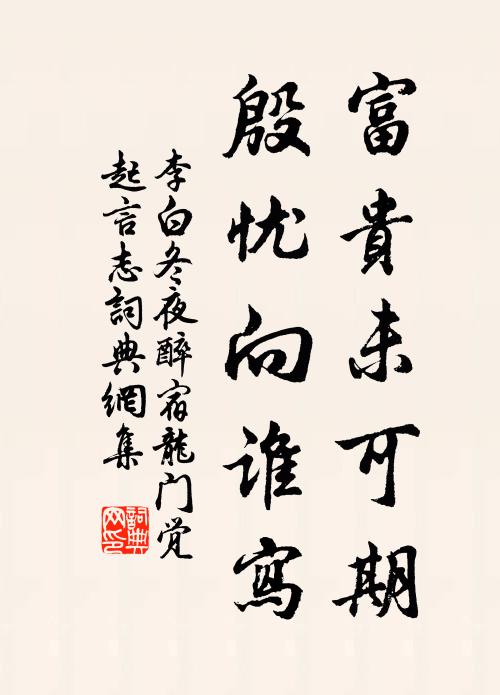 富貴未可期
殷忧向谁寫
李白冬夜醉宿龍门觉
起言志詞典網集
詞典
网印